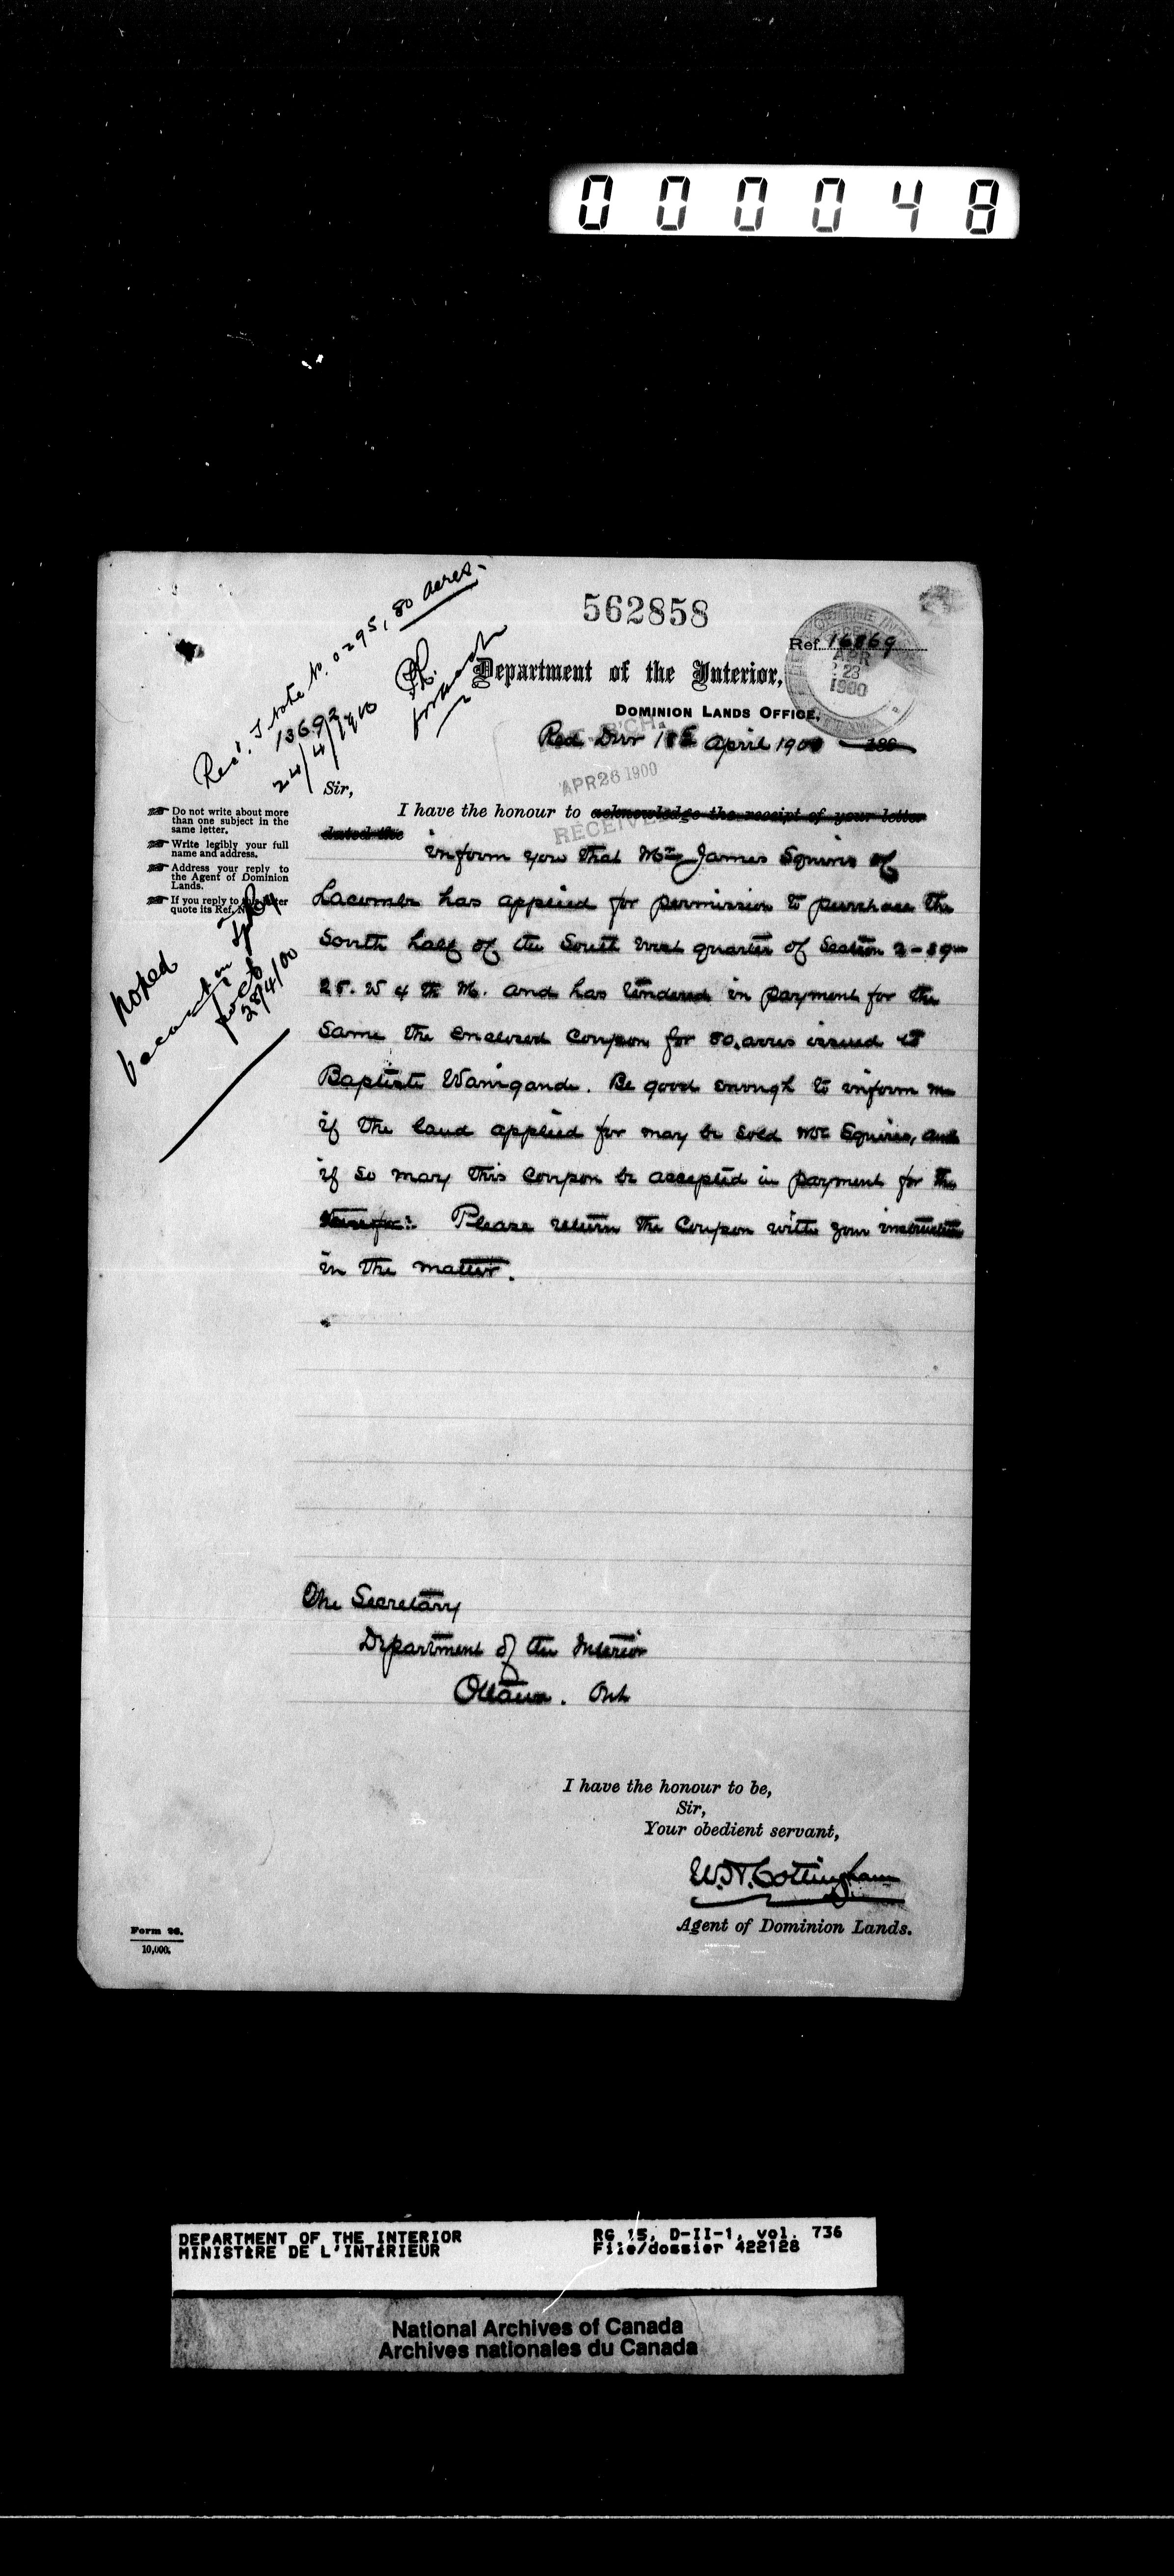 000048
Rec'd. Note No. 0295, 80 acres.
13692
24/4/1900
562858
Ref. 16869
Department of the Interior,
APR
23
1900
DOMINION LANDS OFFICE,
Red Deer 18 April 1900
APR 26 1900
RECEIVE
Sir,
I have the honour to acknowledge the receipt of your letter
dated the
inform you that Mr James Squires of
Lacombe has applied for permission to purchase the
South half of the South West quarter of Section 2-39-
25. W 4 th M. and has tendered in payment for the
same the enclosed Coupon for 80. acres issued to
Baptiste Wanigande. Be good enough to inform me
if the land applied for may be sold Mr Squires, and
if so may this Coupon be accepted in payment for the
Please return the Coupon with your instructions
in the matter.
Do not write about more
than one subject in the
same letter.
Write legibly your full
name and address.
Address your reply to
the Agent of Dominion
Lands.
If you reply to this letter
quote its Ref. No.
Noted
28/4/00
The Secretary
Department of the Interior
Ottawa. Ont
I have the honour to be,
Sir,
Your obedient servant,
W.H. Cottingham
Agent of Dominion Lands.
Form 26.
10,000.
DEPARTMENT OF THE INTERIOR
MINISTÈRE DE L'INTÉRIEUR
RG 15, D-II-1, vol. 736
File/dossier 422128
National Archives of Canada
Archives nationales du Canada